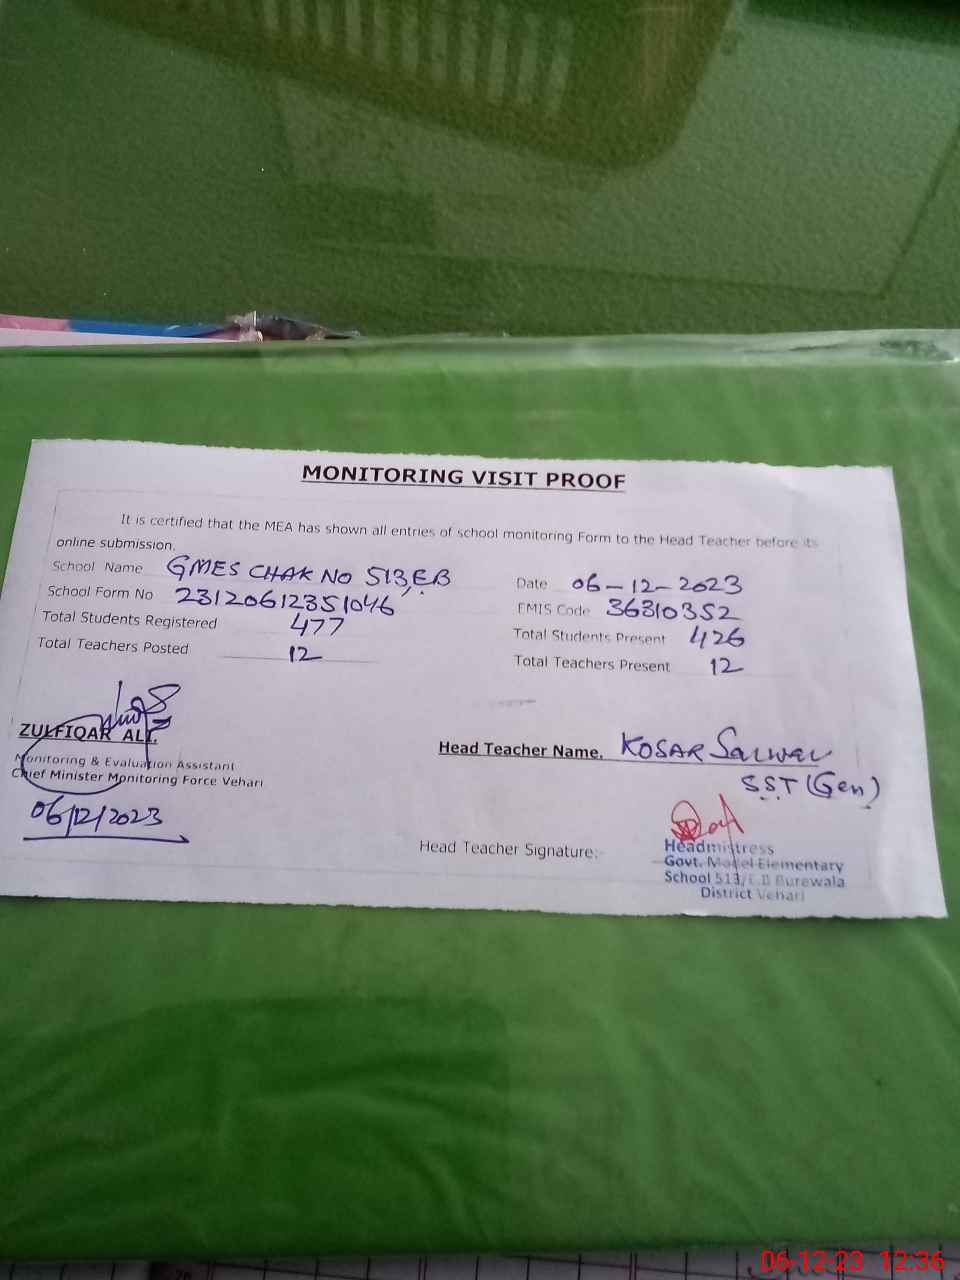 MONITORING VISIT PROOF
It is certified that the MEA has shown all entries of school monitoring Form to the Head Teacher before its
online submission.
School Name GMES CHAK NO 513, EB
Date 06-12-2023
School Form No 23120612351046
EMIS Code 36310352
Total Students Registered 477
Total Students Present 426
Total Teachers Posted 12
Total Teachers Present 12
ZULFIQAR ALI.
Monitoring & Evaluation Assistant
Chief Minister Monitoring Force Vehari
06/12/2023
Head Teacher Name. KOSAR Sarwar
SST (Gen)
Head Teacher Signature:-
Headmistress
Govt. Model Elementary
School 513/E.B Burewala
District Vehari
06-12-23 12:36